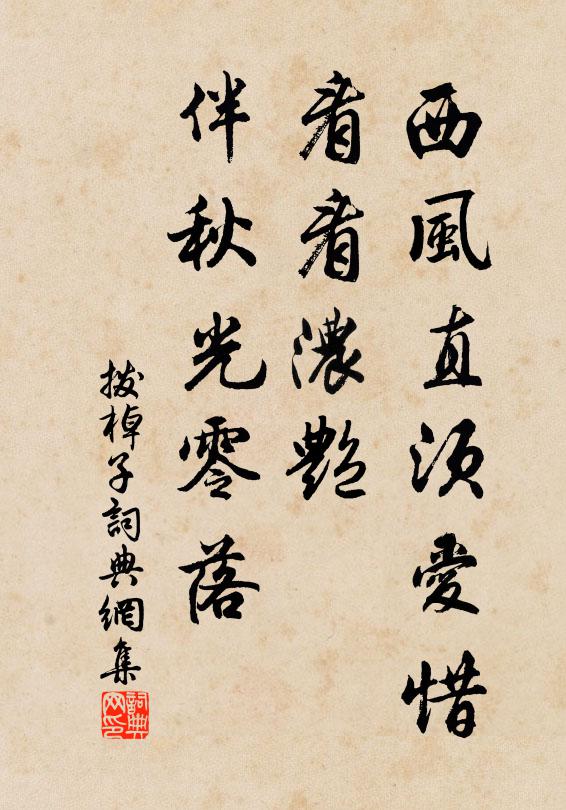 西風直須愛惜
看看濃艷
伴秋光零落
拨棹子詞典網集
詞典网印